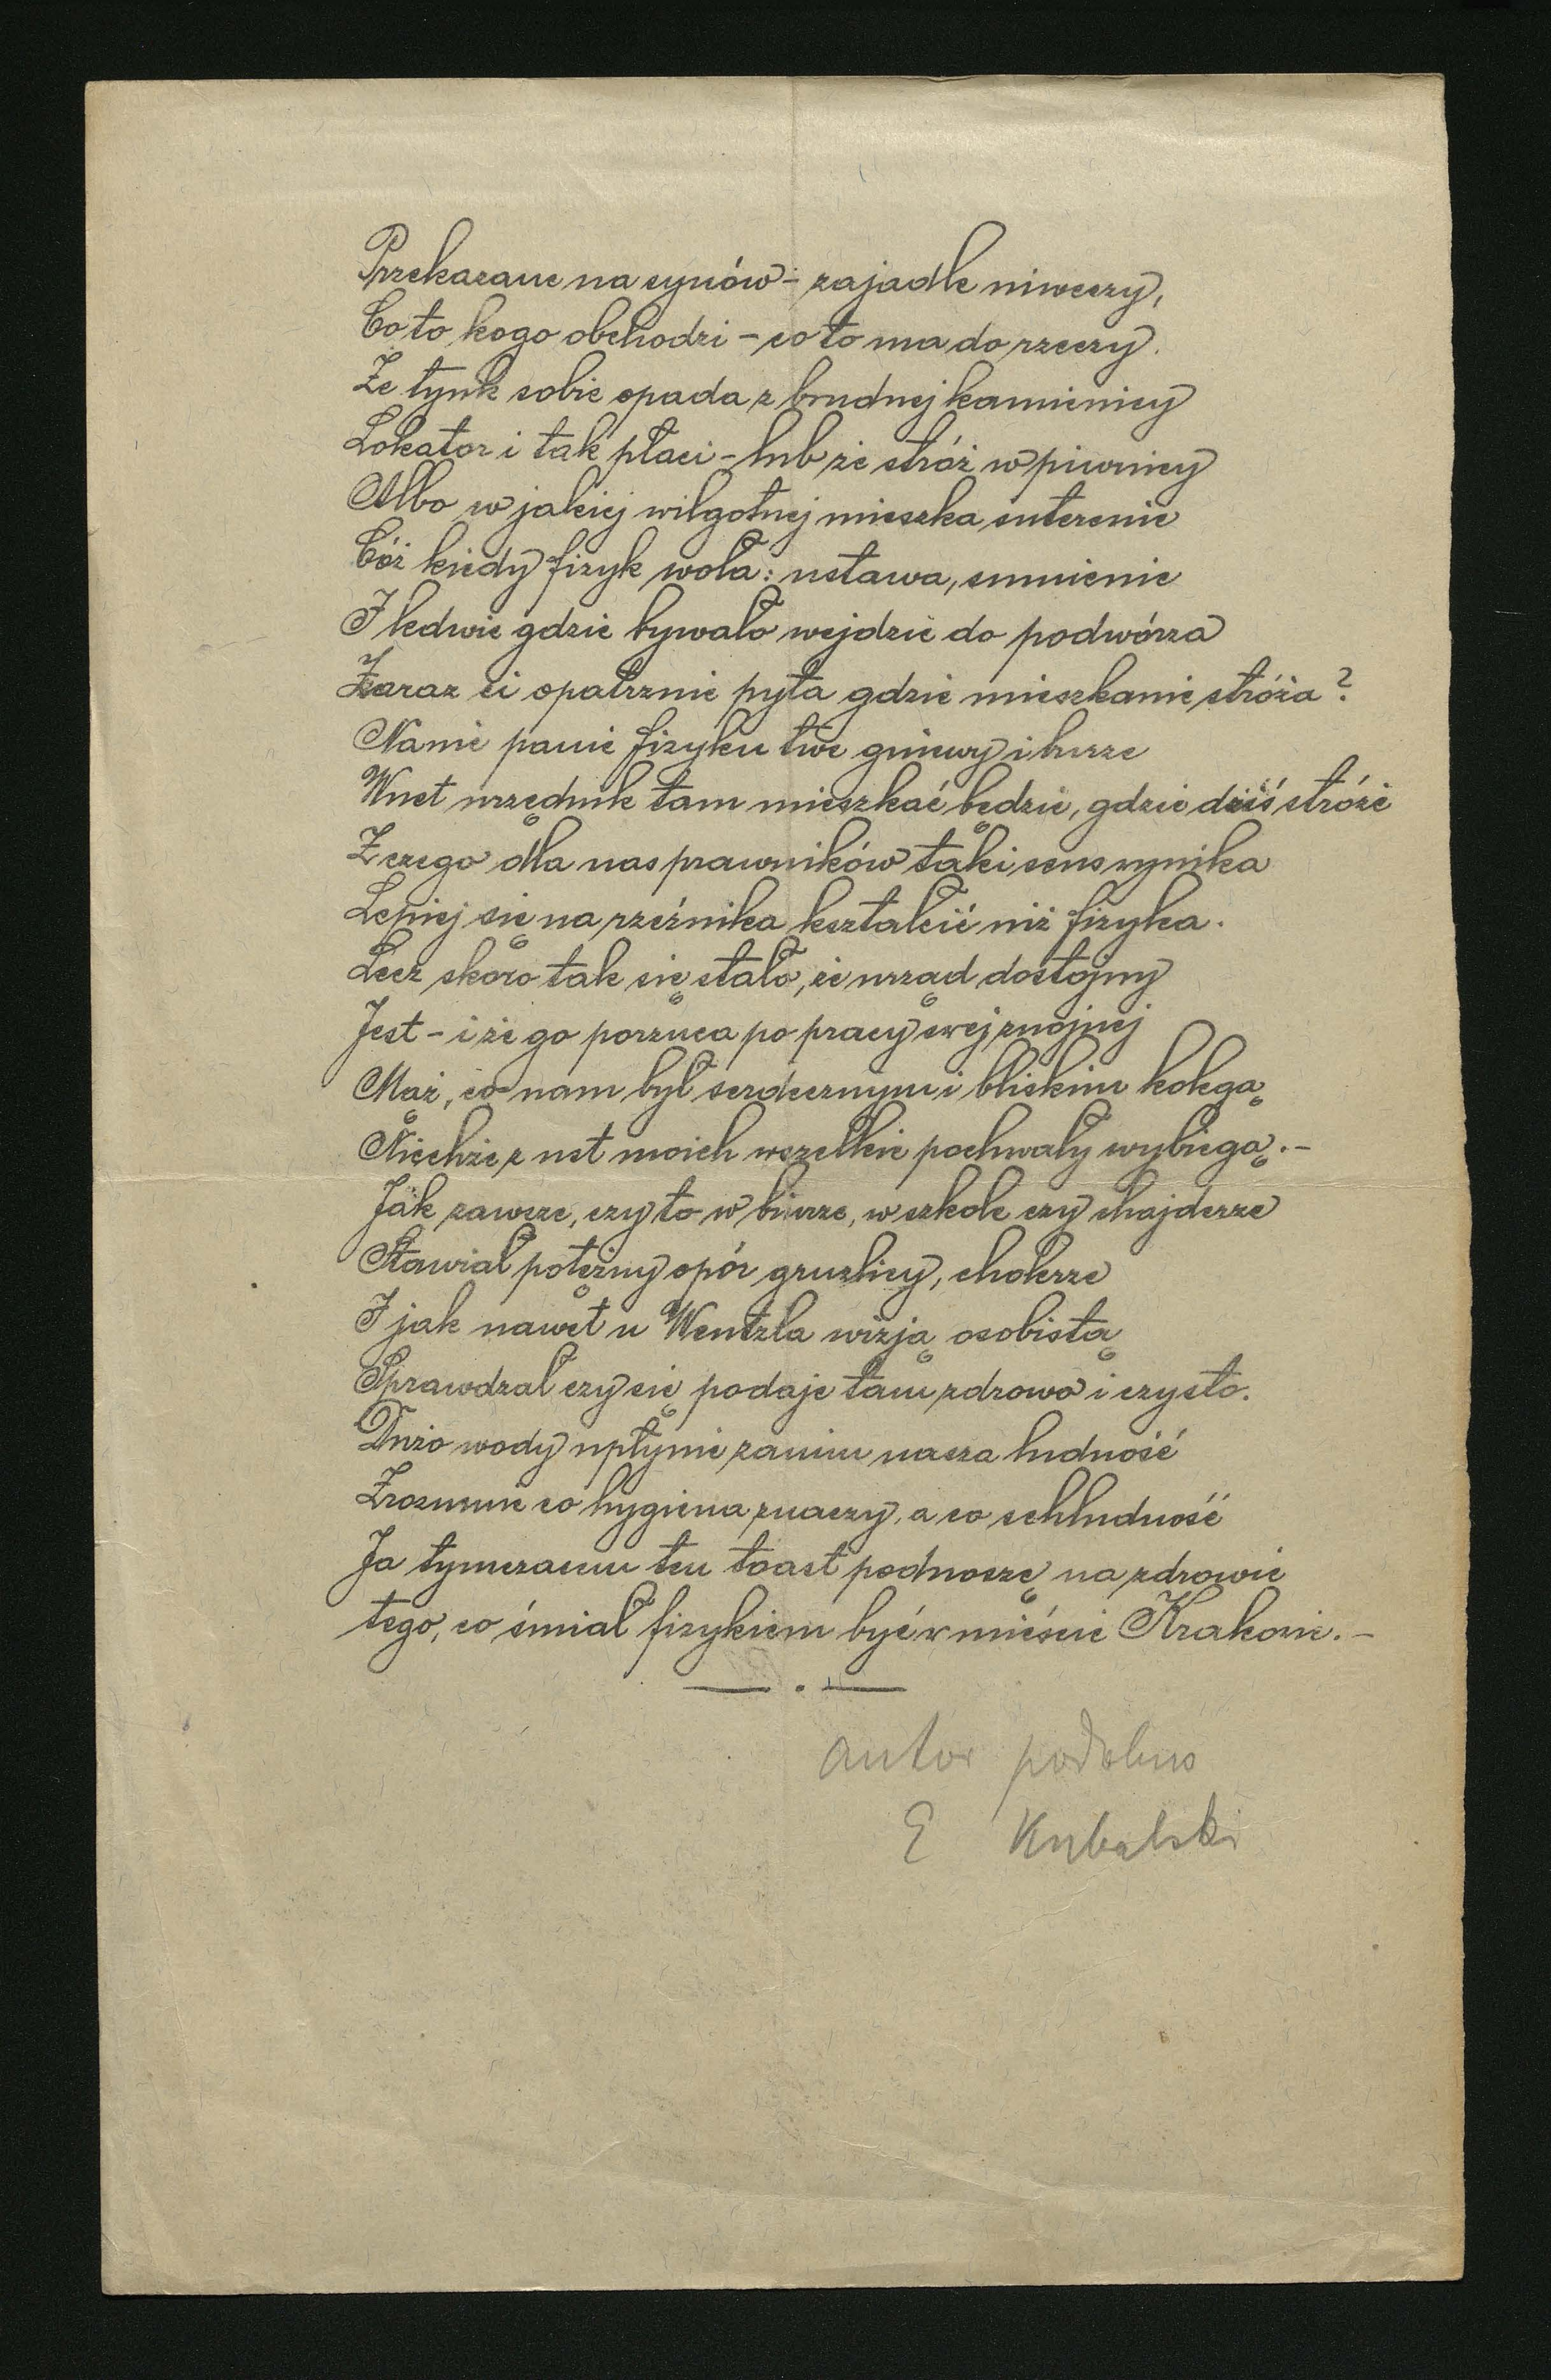 Przekazane na synów - zajadle niweczy,
Co to kogo obchodzi - co to ma do rzeczy.
Że tynk sobie opada z brudnej kamienicy
Lokator i tak płaci - lub że stróż w piwnicy
Albo w jakiej wilgotnej mieszka suterenie
Cóż kiedy fizyk woła: ustawa, sumienie
I ledwie gdzie bywało wejdzie do podwórza
Zaraz ci opatrznie pyta gdzie mieszkanie stróża?
Nanic panie fizyku twe gniewy i burze
Wnet urzędnik tam mieszkać będzie, gdzie dziś stróże
Z czego dla nas prawników taki sens wynika
Lepiej się na rzeźnika kształcić niż fizyka.
Lecz skoro tak się stało, że urząd dostojny
Jest - i że go porzuca po pracy swej znojnej
Mąż, co nam był serdecznym i bliskim kolegą
Niechże z ust moich wszelkie pochwały wybiegą.-
Jak zawsze, czy to w biurze, w szkole czy chajderze
Stawiał potężny opór gruzlicy, cholerze
I jak nawet u Wentzla wizją osobistą
Sprawdzał czy się podaje tam zdrowo i czysto.
Dużo wody upłynie zanim nasza ludność
Zrozumie co hygiena znaczy, a co schludność
Ja tymczasem ten toast podnoszę na zdrowie
tego, co śmiał fizykiem być w mieście Krakowie.-
autor podobno
E Kubalski